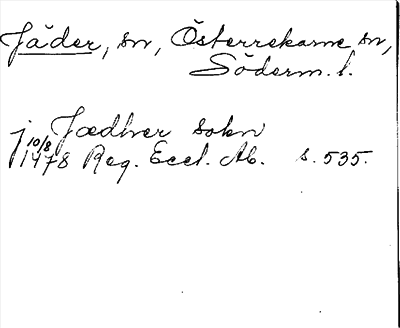 Jäder, sn, Österrekarne sn,
Söderm. l.
j Jædher sokn
10/8 1478 Reg. Eccl. Ab. s. 535.